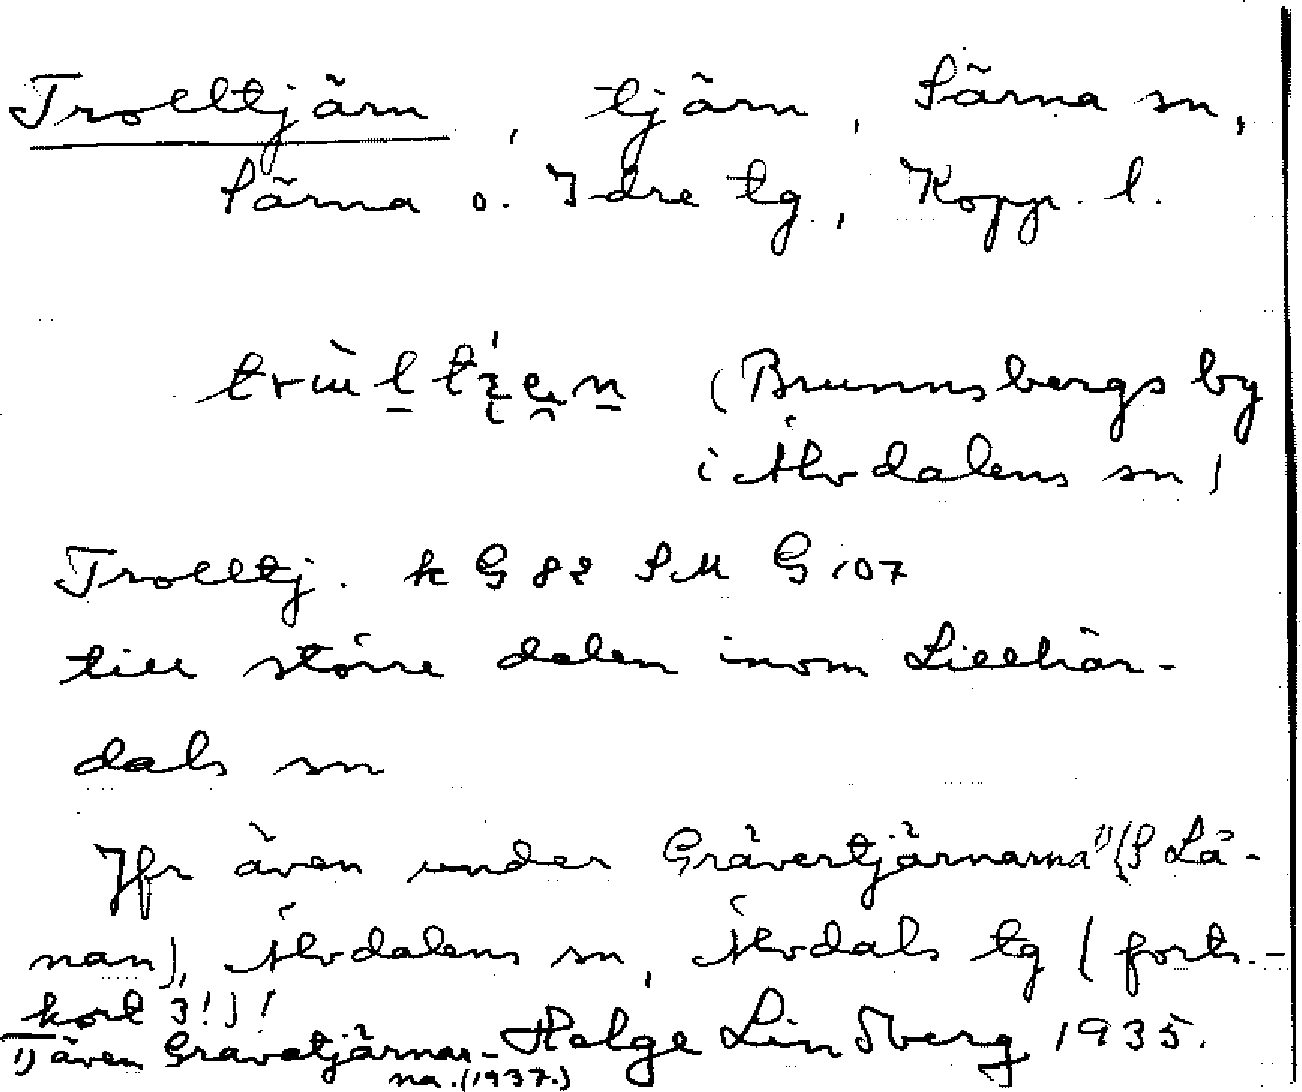 Trolltjärn, tjärn, Särna sn,
Särna o. Idre tg., Kopp. l.
(Brunnsbergs by
i Älvdalens sn)
Trolltj. k G 82 SM G 107
till större delen inom Lillhär-
dals sn
Jfr även under Grävertjärnarna¹⁾ (S Lå-
nan), Älvdalens sn, Älvdals tg (forts.-
kort 3!)!
¹⁾ även Gravatjärnar-
na. (1937.)
Helge Lindberg 1935.